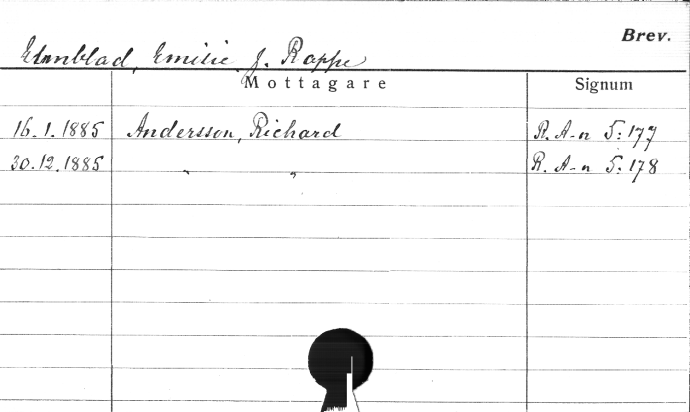 Brev.
Elmblad, Emilie f. Rappe
Mottagare Signum
16.1.1885 Andersson, Richard R. A-n 5:177
30.12.1885 " " R. A-n 5:178